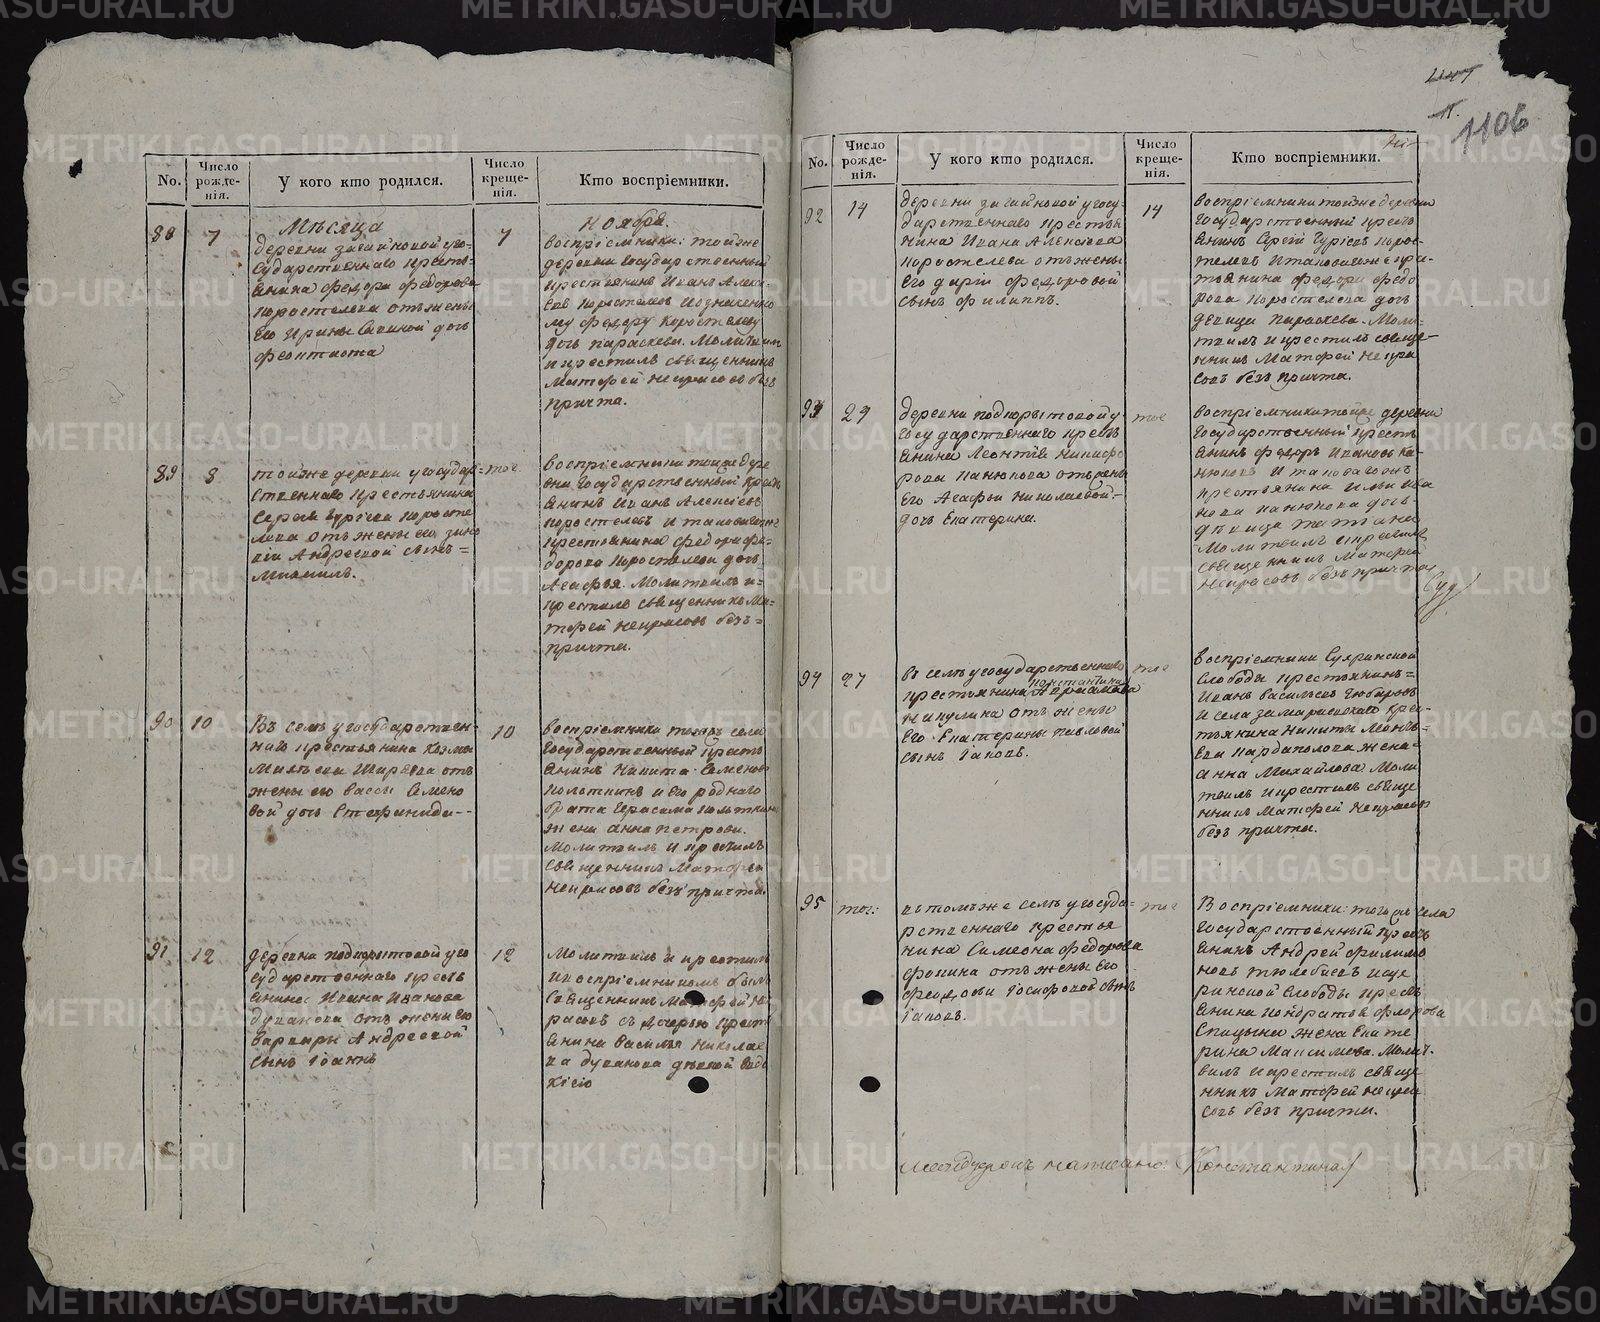 447
11.
1106
No.
Число рожде-нія.
У кого кто родился.
Число креще-нія.
Кто воспріемники.
Мѣсяца
Ноября.
88
7
деревни
государственнаго кресть-
янина Федора Федорова
Коростелева отъ жены
его Ирины Саввиной дочь
Феоктиста
7
воспріемники: тойже
деревни государственный
крестьянинъ Иванъ Алекс-
евъ Коростелевъ и означенно
му Федору Коростелеву
дочь Параскева. Молитвилъ
и крестилъ священникъ
Матфей Некрасовъ безъ
причта.
89
8
тойже деревни у государ-
ственнаго крестьянина
Сергея Гуріева Коросте
лева отъ жены его Зино
віи Андреевой сынъ
Михаилъ.
тое
воспріемники тойже дере
вни государственный кресть
янинъ Иванъ Алексіевъ
Коростелевъ и таковагоже
крестьянина Федора Фе-
дорова Коростелева дочь
Агафья. Молитвилъ и
крестилъ священникъ Ма-
тфей Некрасовъ безъ
причта.
90
10
Въ селѣ у государствен-
наго крестьянина Козмы
отъ
жены его Вассы Семено
вой дочь Стефанида
10
воспріемники тогоже села
государственный кресть
янинъ Никита Семеновъ
и его роднаго
брата Герасима
жена Анна Петрова.
Молитвилъ и крестилъ
священникъ Матфей
Некрасовъ безъ причта.
91
12
деревни Подкорытовой у го
сударственнаго кресть
янина Ивана Иванова
Дуканова отъ жены его
Варвары Андреевой
сынъ Іоаннъ
12
Молитвилъ и крестилъ
и воспріемникомъ былъ
священникъ Матфей Нек
расовъ съ дочерью кресть
янина Василья Николае
ва Дуканова дѣвкой Евдо
кіею
No.
Число рожде-нія.
У кого кто родился.
Число креще-нія.
Кто воспріемники.
92
14
деревни у госу-
дарственнаго крестья
нина Ивана Алексіева
Коростелева отъ жены
его Даріи Федоровой
сынъ Филиппъ.
14
воспріемники тойже деревни
государственный кресть
янинъ Сергій Гуріевъ Корос-
телевъ и таковагоже кре-
стьянина Федора Федо
рова Коростелева дочь
девица Параскева. Моли-
твилъ и крестилъ свяще-
нникъ Матфей Некра
совъ безъ причта.
93
27
деревни Подкорытовой у
государственнаго кресть
янина Леонтія Никифо
рова Панюкова отъ жены
его Агафьи Николаевой
дочь Екатерина.
тое
воспріемники тойже деревни
государственный кресть
янинъ Федоръ Ивановъ Па-
нюковъ и таковагожъ
крестьянина Ильи Ива
нова Панюкова дочь
дѣвица Татьяна
Молитвилъ и крестилъ
священникъ Матфей
Некрасовъ безъ причта
94
27
въ селѣ у государственнаго
крестьянина Константина
Никулина отъ жены
его Екатерины Павловой
сынъ Іаковъ.
тое
воспріемники Сугринской
слободы крестьянинъ
Иванъ Васильевъ
и села Замараевскаго крес-
тьянина Никиты
жена
Анна Михайлова Моли
твилъ и крестилъ свяще
нникъ Матфей Некрасовъ
безъ причта.
95
тог:
въ томъже селѣ у госуда-
рственнаго крестья
нина Симеона Федорова
Фокина отъ жены его
Феодосьи Іосифовой сынъ
Іаковъ.
тое
Воспріемники: тогожъ села
государственный кресть
янинъ Андрей Филимо
новъ
ринской слободы кресть
янина Кондратья Флорова
Спицына жена Екате
рина Максимова. Молит-
вилъ и крестилъ свяще
нникъ Матфей Некра
совъ безъ причта.
Междустрокъ написано: Константина